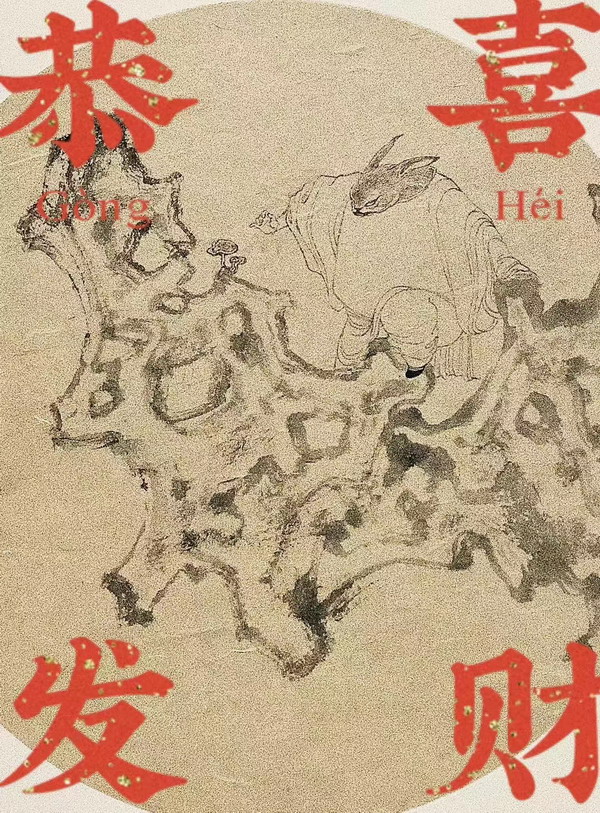 恭 喜
Gòng Héi
发 财